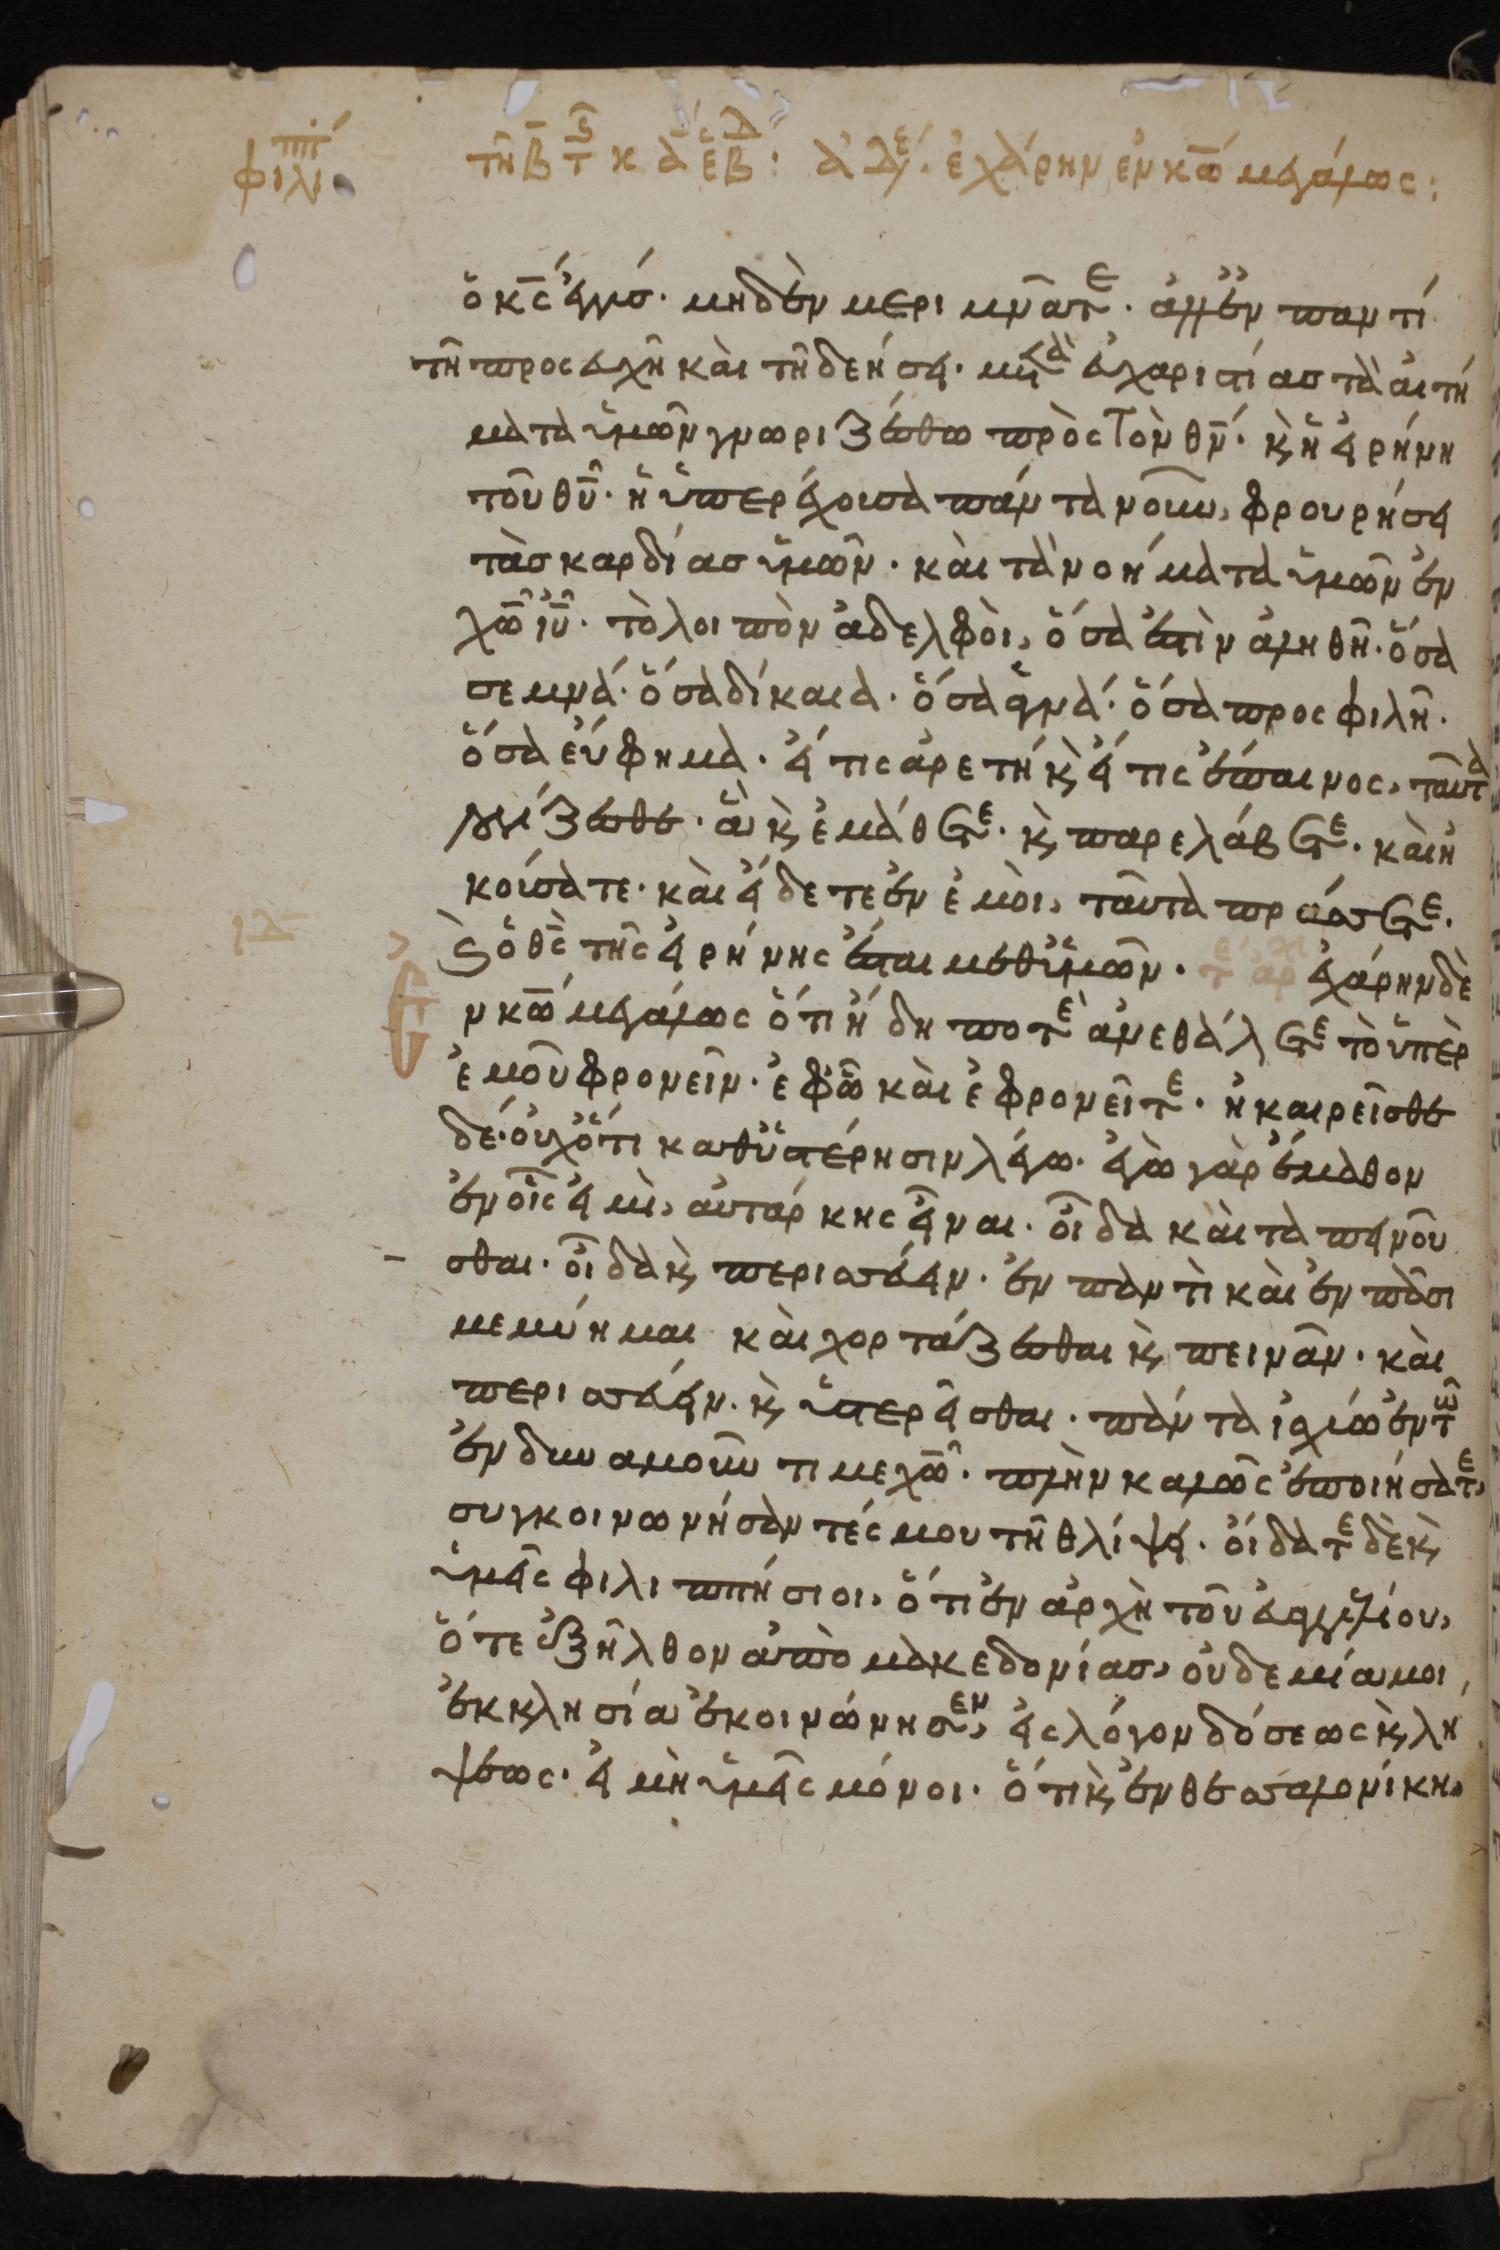 φιλιπ΄ τῆ β̄ τ̄ς κ ᾱ ἑβδ: ἀδελ. ἐχάρην ἐν κ̄ω μεγάλως:
ὁ κ̄ς ἐγγύς. μηδὲν μεριμνᾶτε. ἀλλ' ἐν παντὶ
τῆ προσευχῆ καὶ τῆ δεήσει. μετὰ εὐχαριστίας τὰ αἰτή
ματα ὑμῶν γνωριζέσθω πρὸς τὸν θ̄ν. κ, ἡ εἰρήνη
τοῦ θ̄υ. ἡ ὑπερέχουσα πάντα νοῦν, φρουρήσει
τὰς καρδίας ὑμῶν. καὶ τὰ νοήματα ὑμῶν ἐν
χ̄ω ῑυ. τὸ λοιπὸν ἀδελφοὶ, ὅσα ἐστὶν ἀληθῆ. ὅσα
σεμνά. ὅσα δίκαια. ὅσα ἁγνά. ὅσα προσφιλῆ.
ὅσα εὔφημα. εἴ τις ἀρετή κ, εἴ τις ἔπαινος, ταῦτα
λογίζεσθε. ἃ κ, ἐμάθετε. κ, παρελάβετε. καὶ ἠ
κούσατε. καὶ εἴδετε ἐν ἐμοὶ, ταῦτα πράσσετε.
ιδ κ, ὁ θ̄ς τῆς εἰρήνης ἔσται μεθ' ὑμῶν. ἐχάρην δὲ
ν κ̄ω μεγάλως ὅτι ἤδη ποτὲ ἀνεθάλετε τὸ ὑπὲρ
ἐμοῦ φρονεῖν. ἐφ' ῶ καὶ ἐφρονεῖτε. ἠκαιρεῖσθε
δέ. οὐχ ὅτι καθ' ὑστέρησιν λέγω. ἐγὼ γὰρ ἔμαθον
ἐν οἷς εἰμὶ, αὐτάρκης εἶναι. οἶδα καὶ ταπεινοῦ
σθαι. οἶδα κ, περισσεύειν. ἐν παντὶ καὶ ἐν πᾶσι
μεμύημαι καὶ χορτάζεσθαι κ, πεινᾶν. καὶ
περισσεύειν. κ, ὑστερεῖσθαι. πάντα ἰσχύω ἐν τῶ
ἐνδυναμοῦντι με χ̄ω. πλὴν καλῶς ἐποιήσατε,
συγκοινωνήσαντές μου τῆ θλίψει. οἴδατε δὲ κ,
ὑμεῖς φιλιππήσιοι, ὅτι ἐν ἀρχὴ τοῦ εὐαγγελίου,
ὅτε ἐξῆλθον ἀπὸ μακεδονίας, οὐδεμία μοι
ἐκκλησία ἐκοινώνησεν, εἰς λόγον δόσεως κ, λη
ψεως. εἰ μὴ ὑμεῖς μόνοι. ὅτι κ, ἐν θεσσαλονίκη,